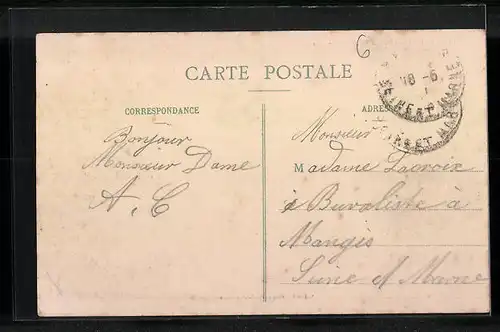 6
CARTE POSTALE
CORRESPONDANCE
Bonjour
Monsieur Dame
A. C
18 -6
ET MARNE
Monsieur
Madame Lacroix
Buraliste à
Nangis
Seine et Marne